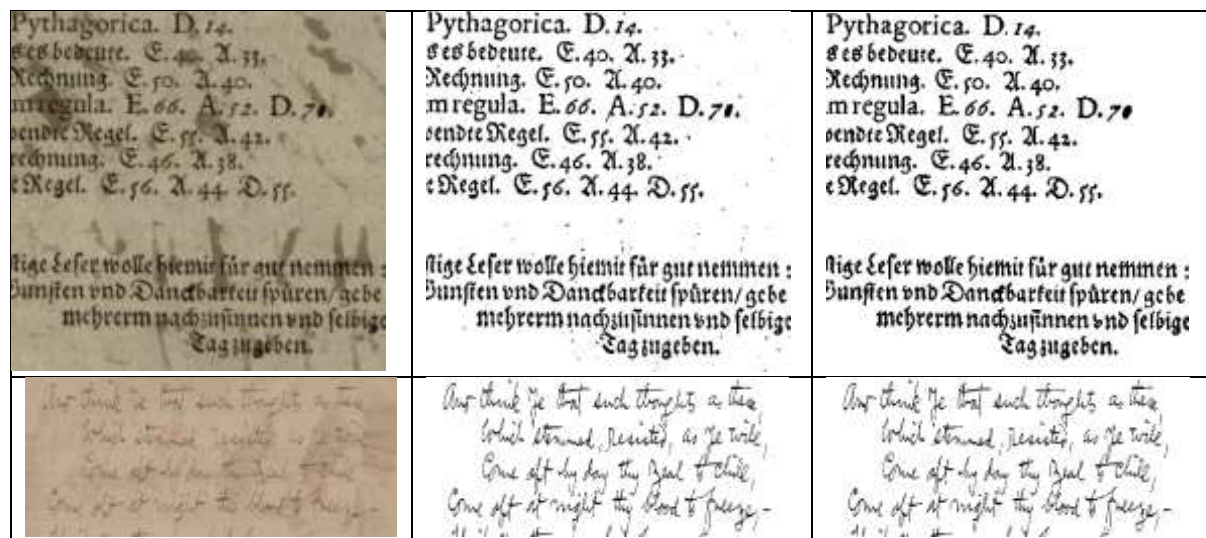 Pythagorica. D. 14.
s es bedeute. E. 40. A. 33.
Rechnung. E. 50. A. 40.
m regula. E. 66. A. 52. D. 70.
wendte Regel. E. 55. A. 42.
rechnung. E. 46. A. 38.
e Regel. E. 56. A. 44. D. 55.
stige Leser wolle hiemit für gut nemmen :
Gunsten vnd Danckbarkeit spüren/ gebe
mehrerm nachzusinnen vnd selbige
Tag zugeben.
Pythagorica. D. 14.
s es bedeute. E. 40. A. 33.
Rechnung. E. 50. A. 40.
m regula. E. 66. A. 52. D. 70.
wendte Regel. E. 55. A. 42.
rechnung. E. 46. A. 38.
e Regel. E. 56. A. 44. D. 55.
stige Leser wolle hiemit für gut nemmen :
Gunsten vnd Danckbarkeit spüren/ gebe
mehrerm nachzusinnen vnd selbige
Tag zugeben.
Pythagorica. D. 14.
s es bedeute. E. 40. A. 33.
Rechnung. E. 50. A. 40.
m regula. E. 66. A. 52. D. 70
wendte Regel. E. 55. A. 42.
rechnung. E. 46. A. 38.
e Regel. E. 56. A. 44. D. 55.
stige Leser wolle hiemit für gut nemmen :
Gunsten vnd Danckbarkeit spüren/ gebe
mehrerm nachzusinnen vnd selbige
Tag zugeben.
And think ye that such thoughts as these,
Which stemmed, resisted, as ye will,
Come oft by day thy zeal to chill,
Come oft at night thy blood to freeze,-
And think ye that such thoughts as these,
Which stemmed, resisted, as ye will,
Come oft by day thy zeal to chill,
Come oft at night thy blood to freeze,-
And think ye that such thoughts as these,
Which stemmed, resisted, as ye will,
Come oft by day thy zeal to chill,
Come oft at night thy blood to freeze,-